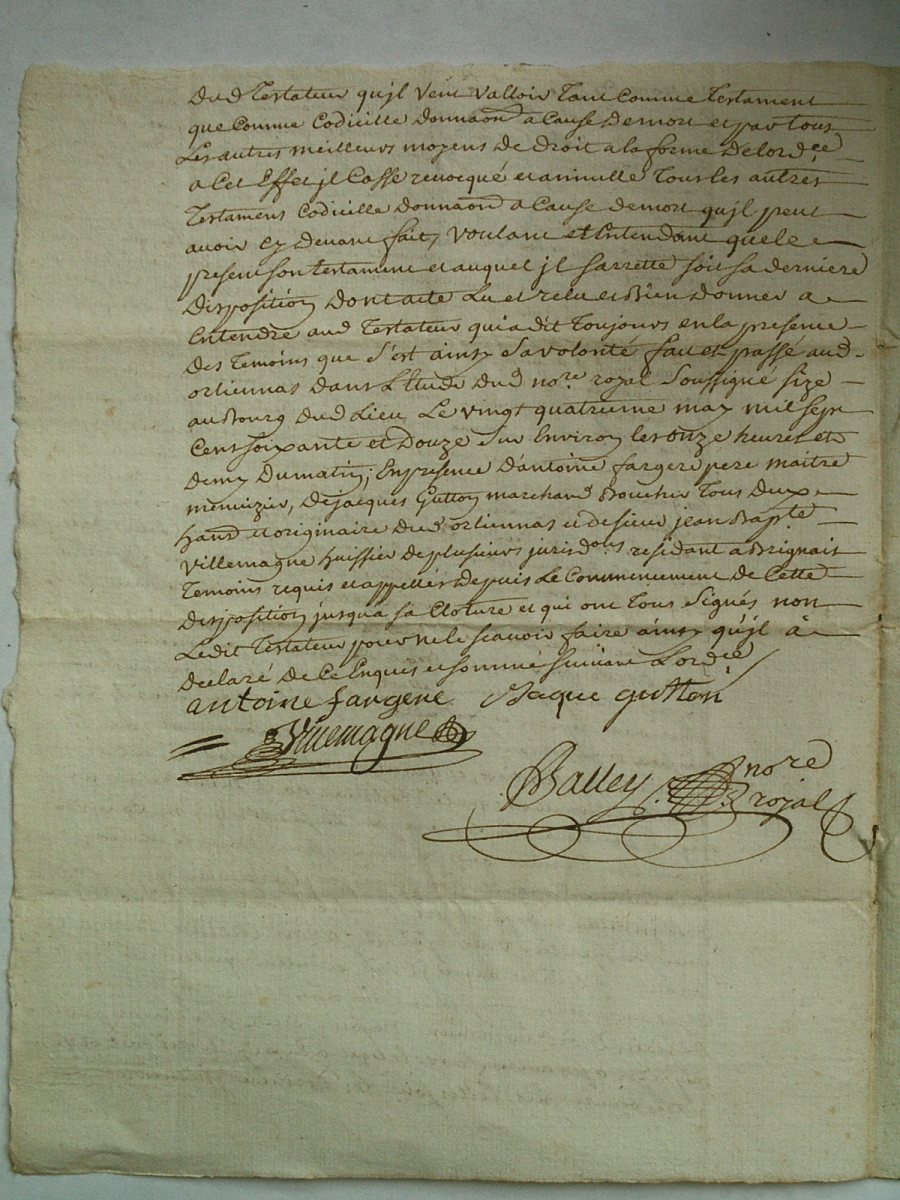 dud Testateur qu'jl veut valloir Tant Comme Testament
que Comme Codicille donnaon a Cause demort et par tous
Les autres meilleurs moyens de droit a la forme de lord.ce
a Cet Effet jl Casse revocqué et annulle Tous les autres
Testamens Codicille donnaon a Cause demort qu'jl peut
avoir Cy devant fait, voulant et Entendant que le
present son testament et auquel jl sarrette soit sa derniere
disposition dont acte Lu et relu et Bien donner a
Entendre aud Testateur qui a dit Toujours en la presence
des Temoins que s'est ainsy sa volonté fait et passé aud
orliennas dans L'Etude dud nore. royal soussigné size
au Bourg dud Lieu Le vingt quatrieme may mil sept
Cent soixante et douze sur Environ les onze heures et
demy dumatin; En presence d'antoine fargere pere maitre
menuizier, de jacques Gutton marchand Boucher Tous deux
hant et originaire dud orliennas et de sieur jean Bapte.
villemagne huissier de plusieurs jurisdons residant a Brignait
Temoins requis et appellés depuis Le Commencement de Cette
disposition jusqua sa Cloture et qui ont Tous signés non
Ledit Testateur pour ne le scavoir faire ainsy qu'jl a
declaré de Ce Enquis et sommé suivant Lordce
antoine fargere Jaque gutton
Villemagne
Balley nore
royal